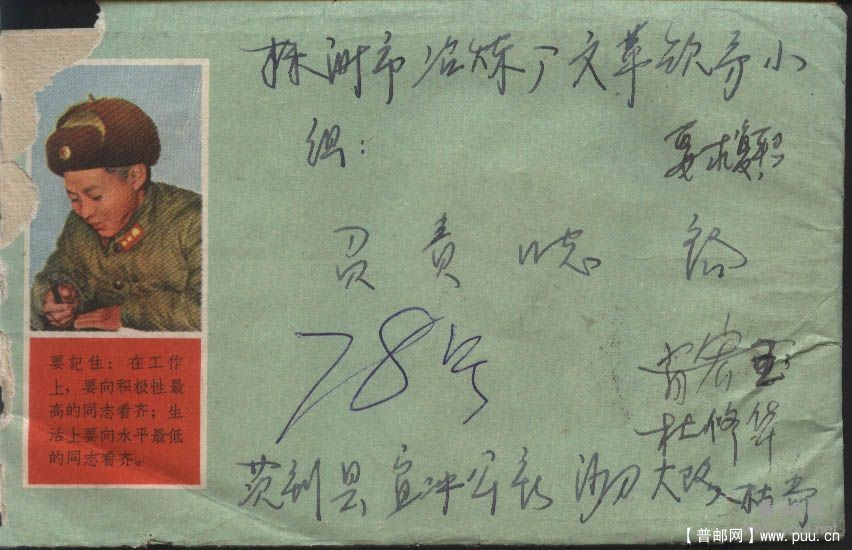 株洲市冶炼厂文革领导小
组:
要求复职
负责 启
78号
肖宏玉
杜修华
县宣冲公社 大队
要記住:在工作
上,要向积极性最
高的同志看齐;生
活上要向水平最低
的同志看齐。
【普邮网】www.puu.cn